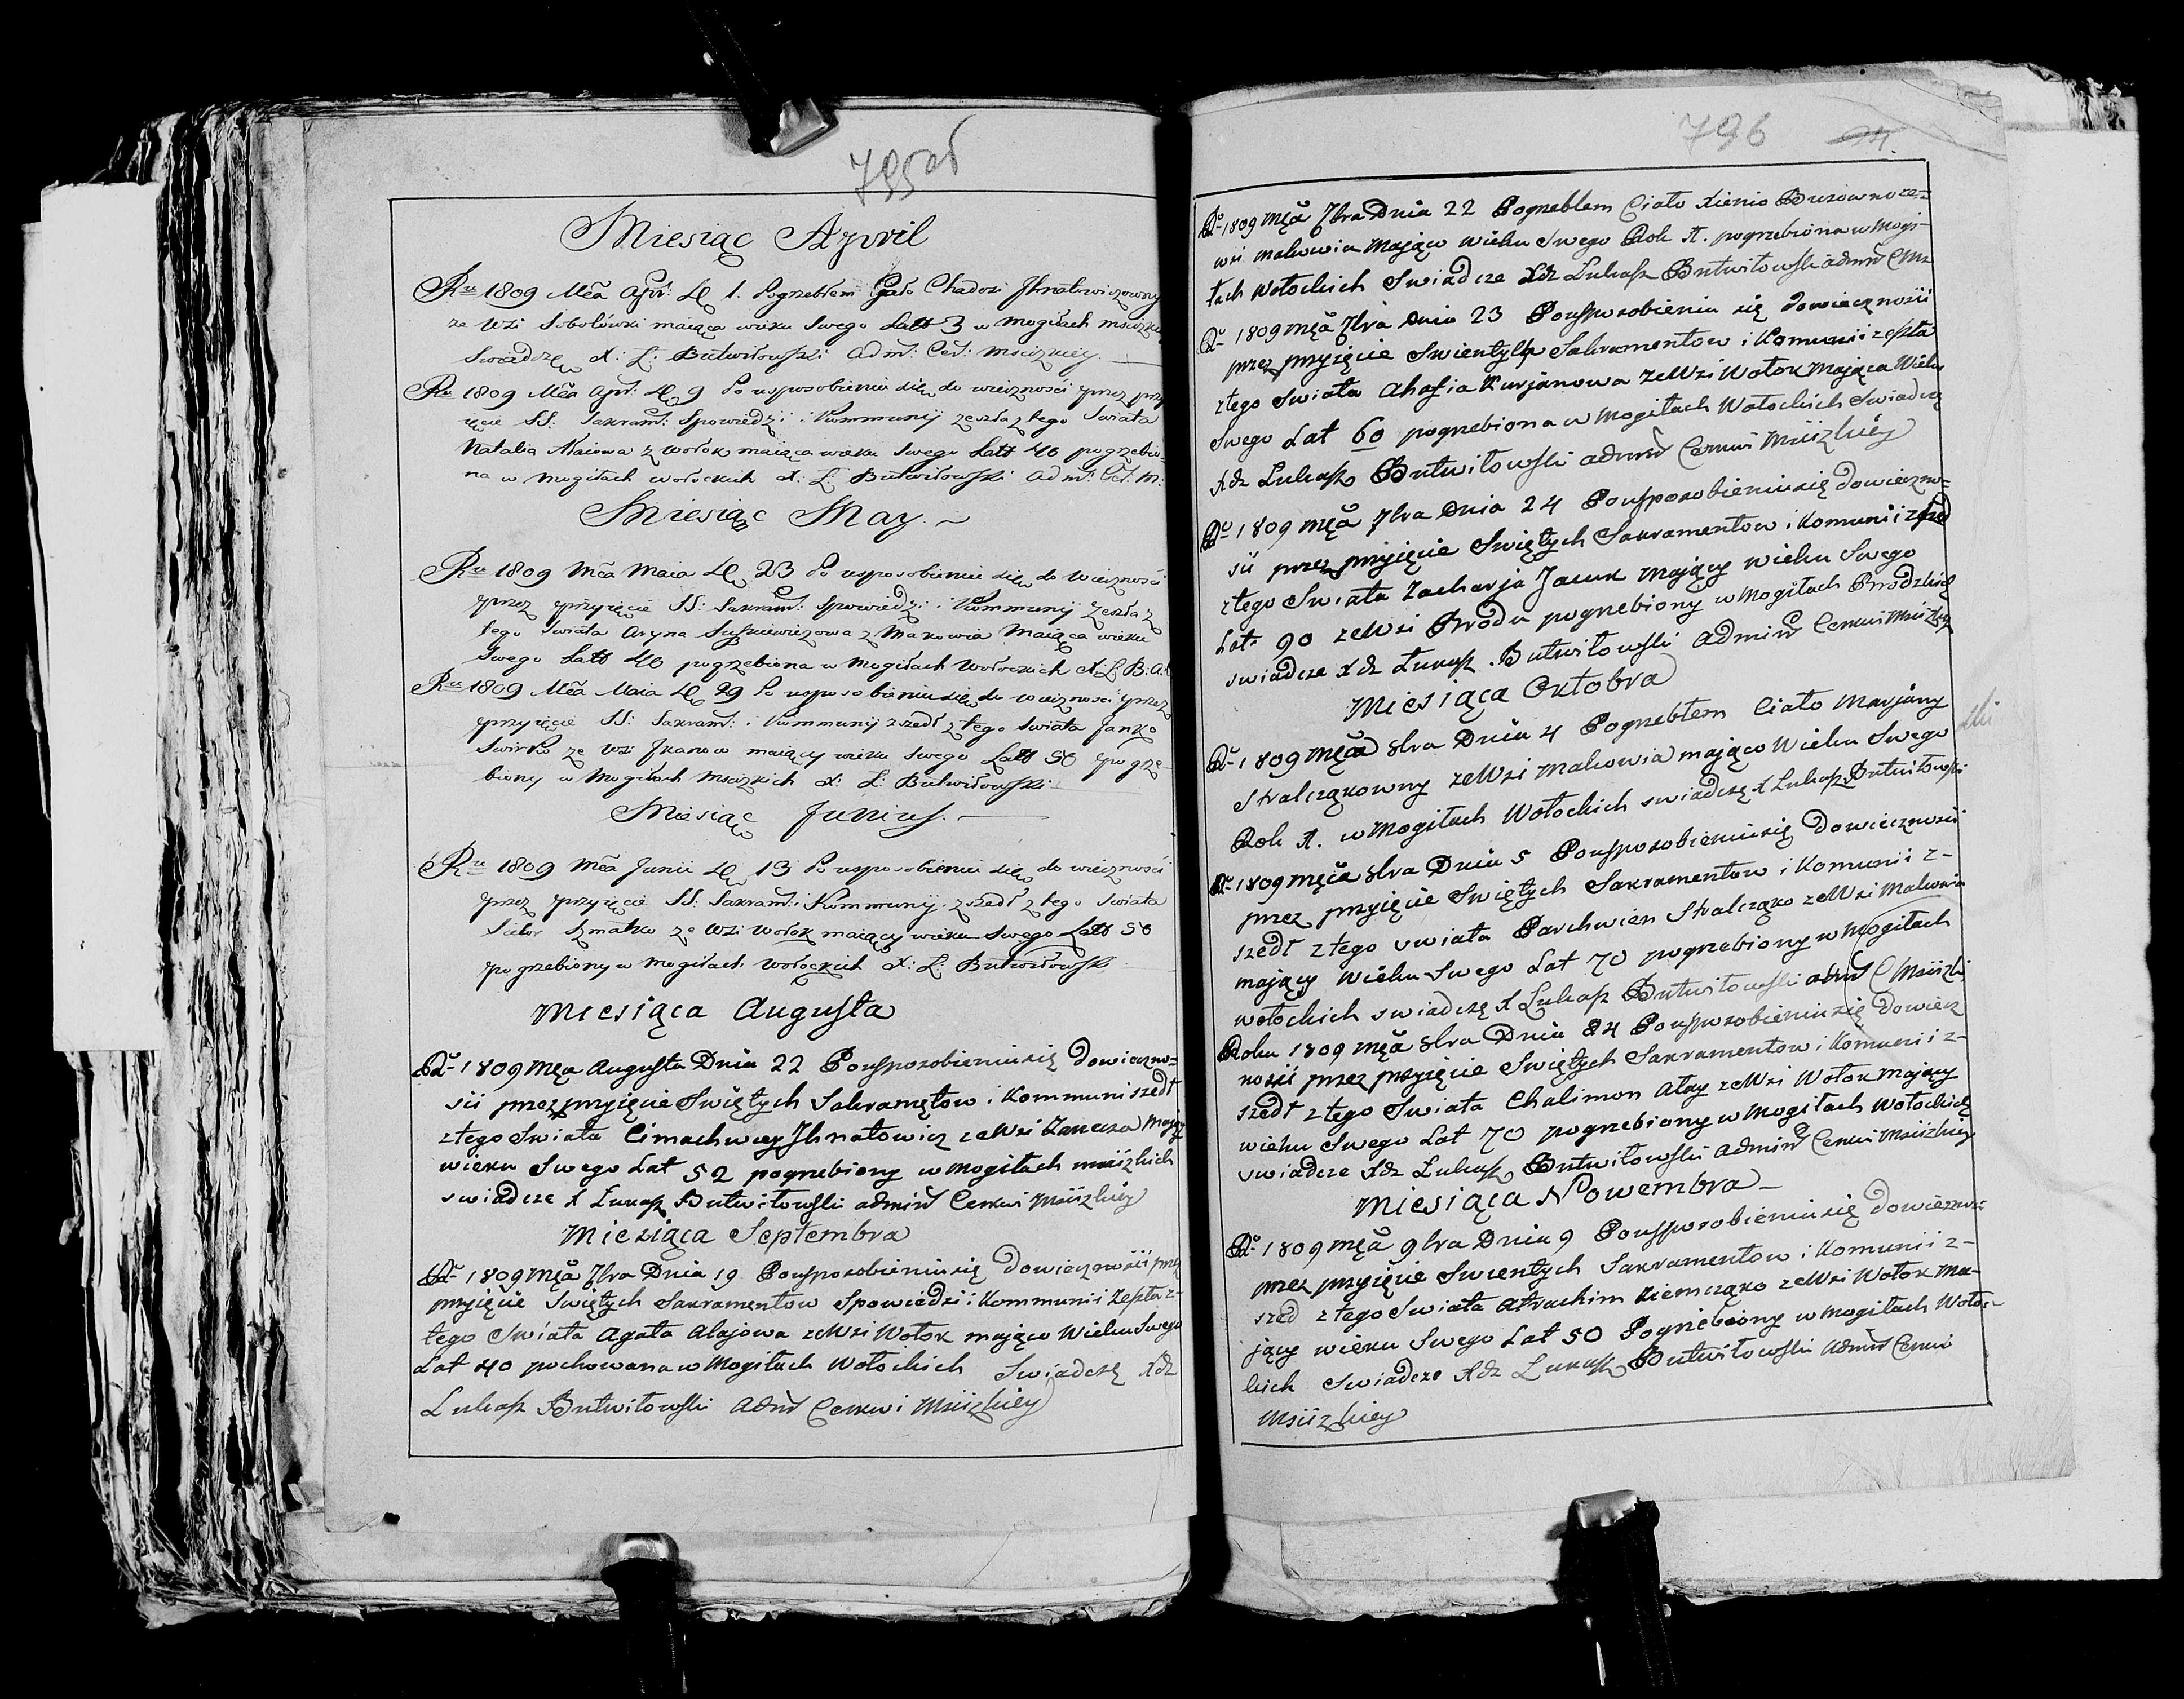 795об
Miesiąc Apryil
Ru 1809 Mca Apr: D 1. Pogrzebłem Ciało Chadosi Ihnatowiczowny
ze Wsi Sobolówki maiąca wieku Swego Latt 3 w Mogiłach Mscizkich
Swiadczę X: Ł: Butwiłowski Adm: Cer: Mscizkiey.
Ru 1809 Mca Apr: D 9 Po usposobieniu się do wiecznosci przez przy
ięcie SS: Sakram: Spowiedzi i Kommunij zeszła z tego Swiata
Natalia Alaiowa z Wołok maiąca wieku Swego Latt 40 pogrzebio-
na w Mogiłach wołockich X: Ł: Butwiłowski Adm: Cer: M:
Miesiąc May.
Ru 1809 Mca Maia D 23 Po usposobieniu się do Wiecznosci
przez przyięcie SS: Sakram: Spowiedzi i Kommunij zeszła z
tego Swiata Aryna Suszkiewiczowa z Makowia Maiąca wieku
Swego Latt 40 pogrzebiona w Mogiłach Wołockich X: Ł: B: A:
Ru 1809 Mca Maia D 29 Po usposobieniu się do wiecznosci przez
przyięcie SS: Sakram: i Kommunij zszedł z tego Swiata Janko
Swirko ze Wsi maiący wieku Swego Latt 50 pogrze-
biony w Mogiłach Mscizkich X: Ł: Butwiłowski.
Miesiąc Junius.
Ru 1809 Mca Junii D 13 Po usposobieniu się do wiecznosci
przez przyięcie SS: Sakram: i Kommunij zszedł z tego Swiata
Szmatko ze Wsi Wołok maiący wieku Swego Latt 50
pogrzebiony w Mogiłach wołockich X: Ł: Butwiłowski
Miesiąca Augusta
Ru 1809 Mca Augusta Dnia 22 Pousposobieniusię dowieczno-
sci przez przyięcie Swiętych Sakramętow i Kommuni szedł
ztego Swiata Cimachwey Ihnatowicz zeWsi Mający
wieku Swego Lat 52 pogrzebiony w Mogiłach msciizkich
swiadcze X Łukasz Butwiłowski admin Cerkwi Msciizkiey
Miesiąca Septembra
Ru 1809 Mca 7bra Dnia 19 Pousposobieniusię dowiecznosci prze
przyięcie Swiętych Sakramentow Spowiedzi i Kommunii zeszła z-
tego Swiata Agata Alajowa zeWsi Wołok mająca Wieku Swego
Lat 40 pochowana w Mogiłach Wołockich Swiadczę Xdz
Łukasz Butwiłowski Admi Cerkwi Msciizkiey
796
Ru 1809 Mca 7bra Dnia 22 Pogrzeblem Ciało Xienio ze-
wsi makowia Mająca wieku Swego Rok 1. pogrzebiona w Mogi-
łach Wołockich Swiadcze Xdz Łukasz Butwiłowski admin C Ms
Ru 1809 Mca 7bra Dnia 23 Pousposobieniu się dowiecznosci
przez przyięcie Swientych Sakramentow i Komunii zeszła
ztego Swiata Ahafia Kurjanowa zeWsi Wołok Mająca Wieku
Swego Lat 60 pogrzebiona w Mogiłach Wołockich Swiadczę
Xdz Łukasz Butwiłowski admin Cerkwi Msciizkiey
Ru 1809 Mca 7bra Dnia 24 Pousposobieniusię dowieczno-
sci przez przyięcie Swiętych Sakramentow i Komunii zszed
ztego Swiata Zacharja Jacuk Mający Wieku Swego
Lat 90 zeWsi Brodu pogrzebiony w Mogiłach Brodzkich
swiadcze Xdz Łukasz Butwiłowski Admin Cerkwi Msciizkiey
Miesiąca Oktobra
Ru 1809 Mca 8bra Dnia 4 Pogrzebłem Ciało Marjany
Stralcząkowny zeWsi Makowia mająca Wieku Swego
Rok 1. w Mogiłach Wołockich swiadczę X Łukasz Butwiłowski
Ru 1809 Mca 8bra Dnia 5 Pousposobieniusię dowiecznosci
przez przyięcie Swiętych Sakramentow i Komunii z-
szedł ztego swiata Parchwien Stralcząko zeWsi Makowia
mający Wieku Swego Lat 70 pogrzebiony w Mogiłach
wołockich swiadczę X Łukasz Butwiłowski admi C Msciizki
Roku 1809 Mca 8bra Dnia 24 Pousposobieniusię dowiecz
nosci przez przyięcie Swiętych Sakramentow i Komunii z-
szedł ztego Swiata Chalimon Alay zeWsi Wołok Mający
wieku Swego Lat 70 pogrzebiony w Mogiłach Wołockich
swiadcze Xdz Łukasz Butwiłowski Admin Cerkwi Msciizkiey
Miesiąca Nowembra
Ru 1809 Mca 9bra Dnia 9 Pousposobieniusię dowiecznosc
przez przyięcie Swientych Sakramentow i Komunii z-
szed ztego Swiata Atrachim Ziemcząko zeWsi Wołok Ma-
jący wieku Swego Lat 50 Pogrzebiony w Mogiłach Woło-
kich Swiadcze Xdz Łukasz Butwiłowski Admin Cerkwi
Msciizkiey